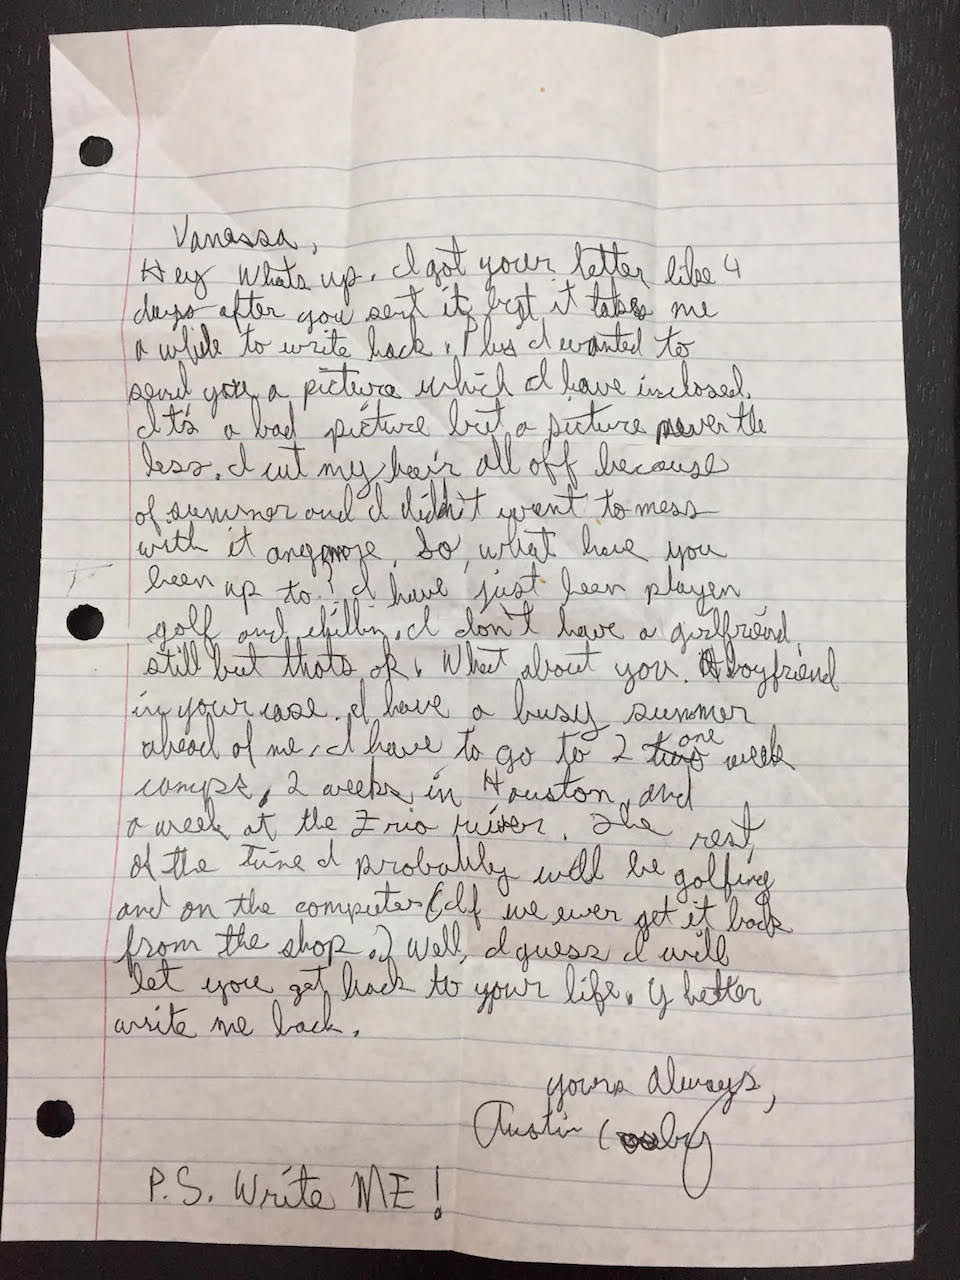 Vanessa,
Hey whats up. I got your letter like 4
days after you sent it but it takes me
a while to write back. Plus I wanted to
send you a picture which I have inclosed.
It's a bad picture but a picture never the
less. I cut my hair all off because
of summer and I didn't went to mess
with it anymore. So, what have you
been up to? I have just been playen
golf and chillin. I don't have a girlfriend
still but thats ok. What about you. A boyfriend
in your case. I have a busy summer
ahead of me. I have to go to 2 one week
camps, 2 weeks in Houston, and
a week at the Frio river. The rest
of the time I probably will be golfing
and on the computer (If we ever get it back
from the shop.) Well, I guess I will
let you get back to your life. Y better
write me back.
Yours Always,
Austin
P.S. Write ME!